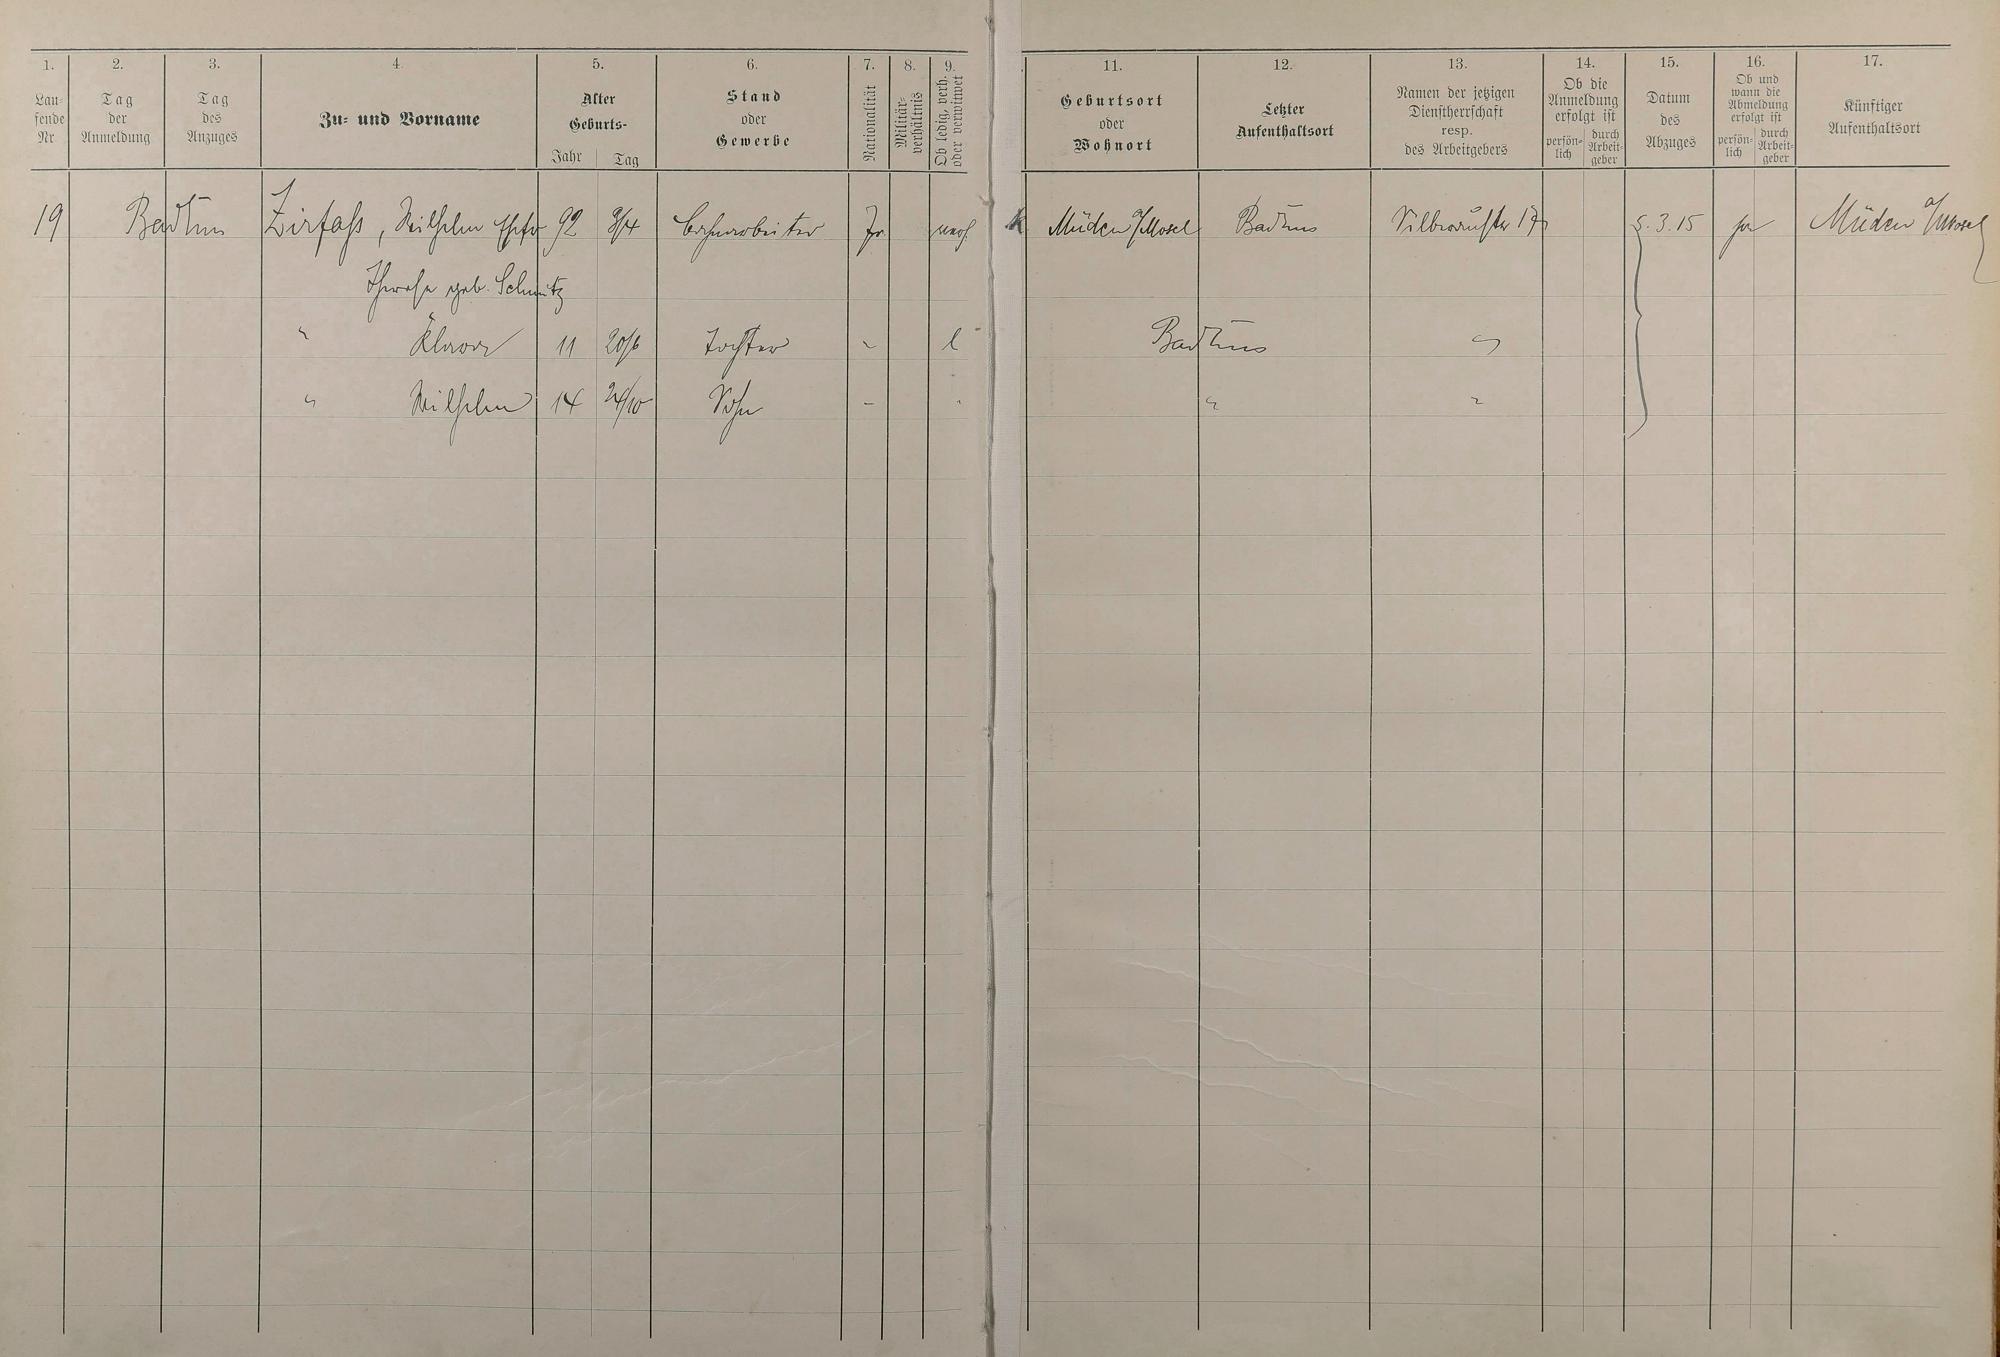 1. 2. 3. 4. 5. 6. 7. 8. 9. 11. 12. 13. 14. 15. 16. 17.
Lau-
fende
Nr
Tag
der
Anmeldung
Tag
des
Anzuges
Zu- und Vorname
Alter
Geburts-
Jahr Tag
Stand
oder
Gewerbe
Nationalität
Militär-
verhältnis
Ob ledig, verh.
oder verwitwet
Geburtsort
oder
Wohnort
Letzter
Aufenthaltsort
Namen der jetzigen
Dienstherrschaft
resp.
des Arbeitgebers
Ob die
Anmeldung
erfolgt ist
persön-
lich
durch
Arbeit-
geber
Datum
des
Abzuges
Ob und
wann die
Abmeldung
erfolgt ist
persön-
lich
durch
Arbeit-
geber
Künftiger
Aufenthaltsort
19 Zirfaß, Wilhelm 92 k Müden a/Mosel 17 5.3.15 Müden a/Mosel
Therese geb. Schmitz
" Klara 11 20/6 Tochter l "
" Wilhelm 14 24/10 Sohn - " "